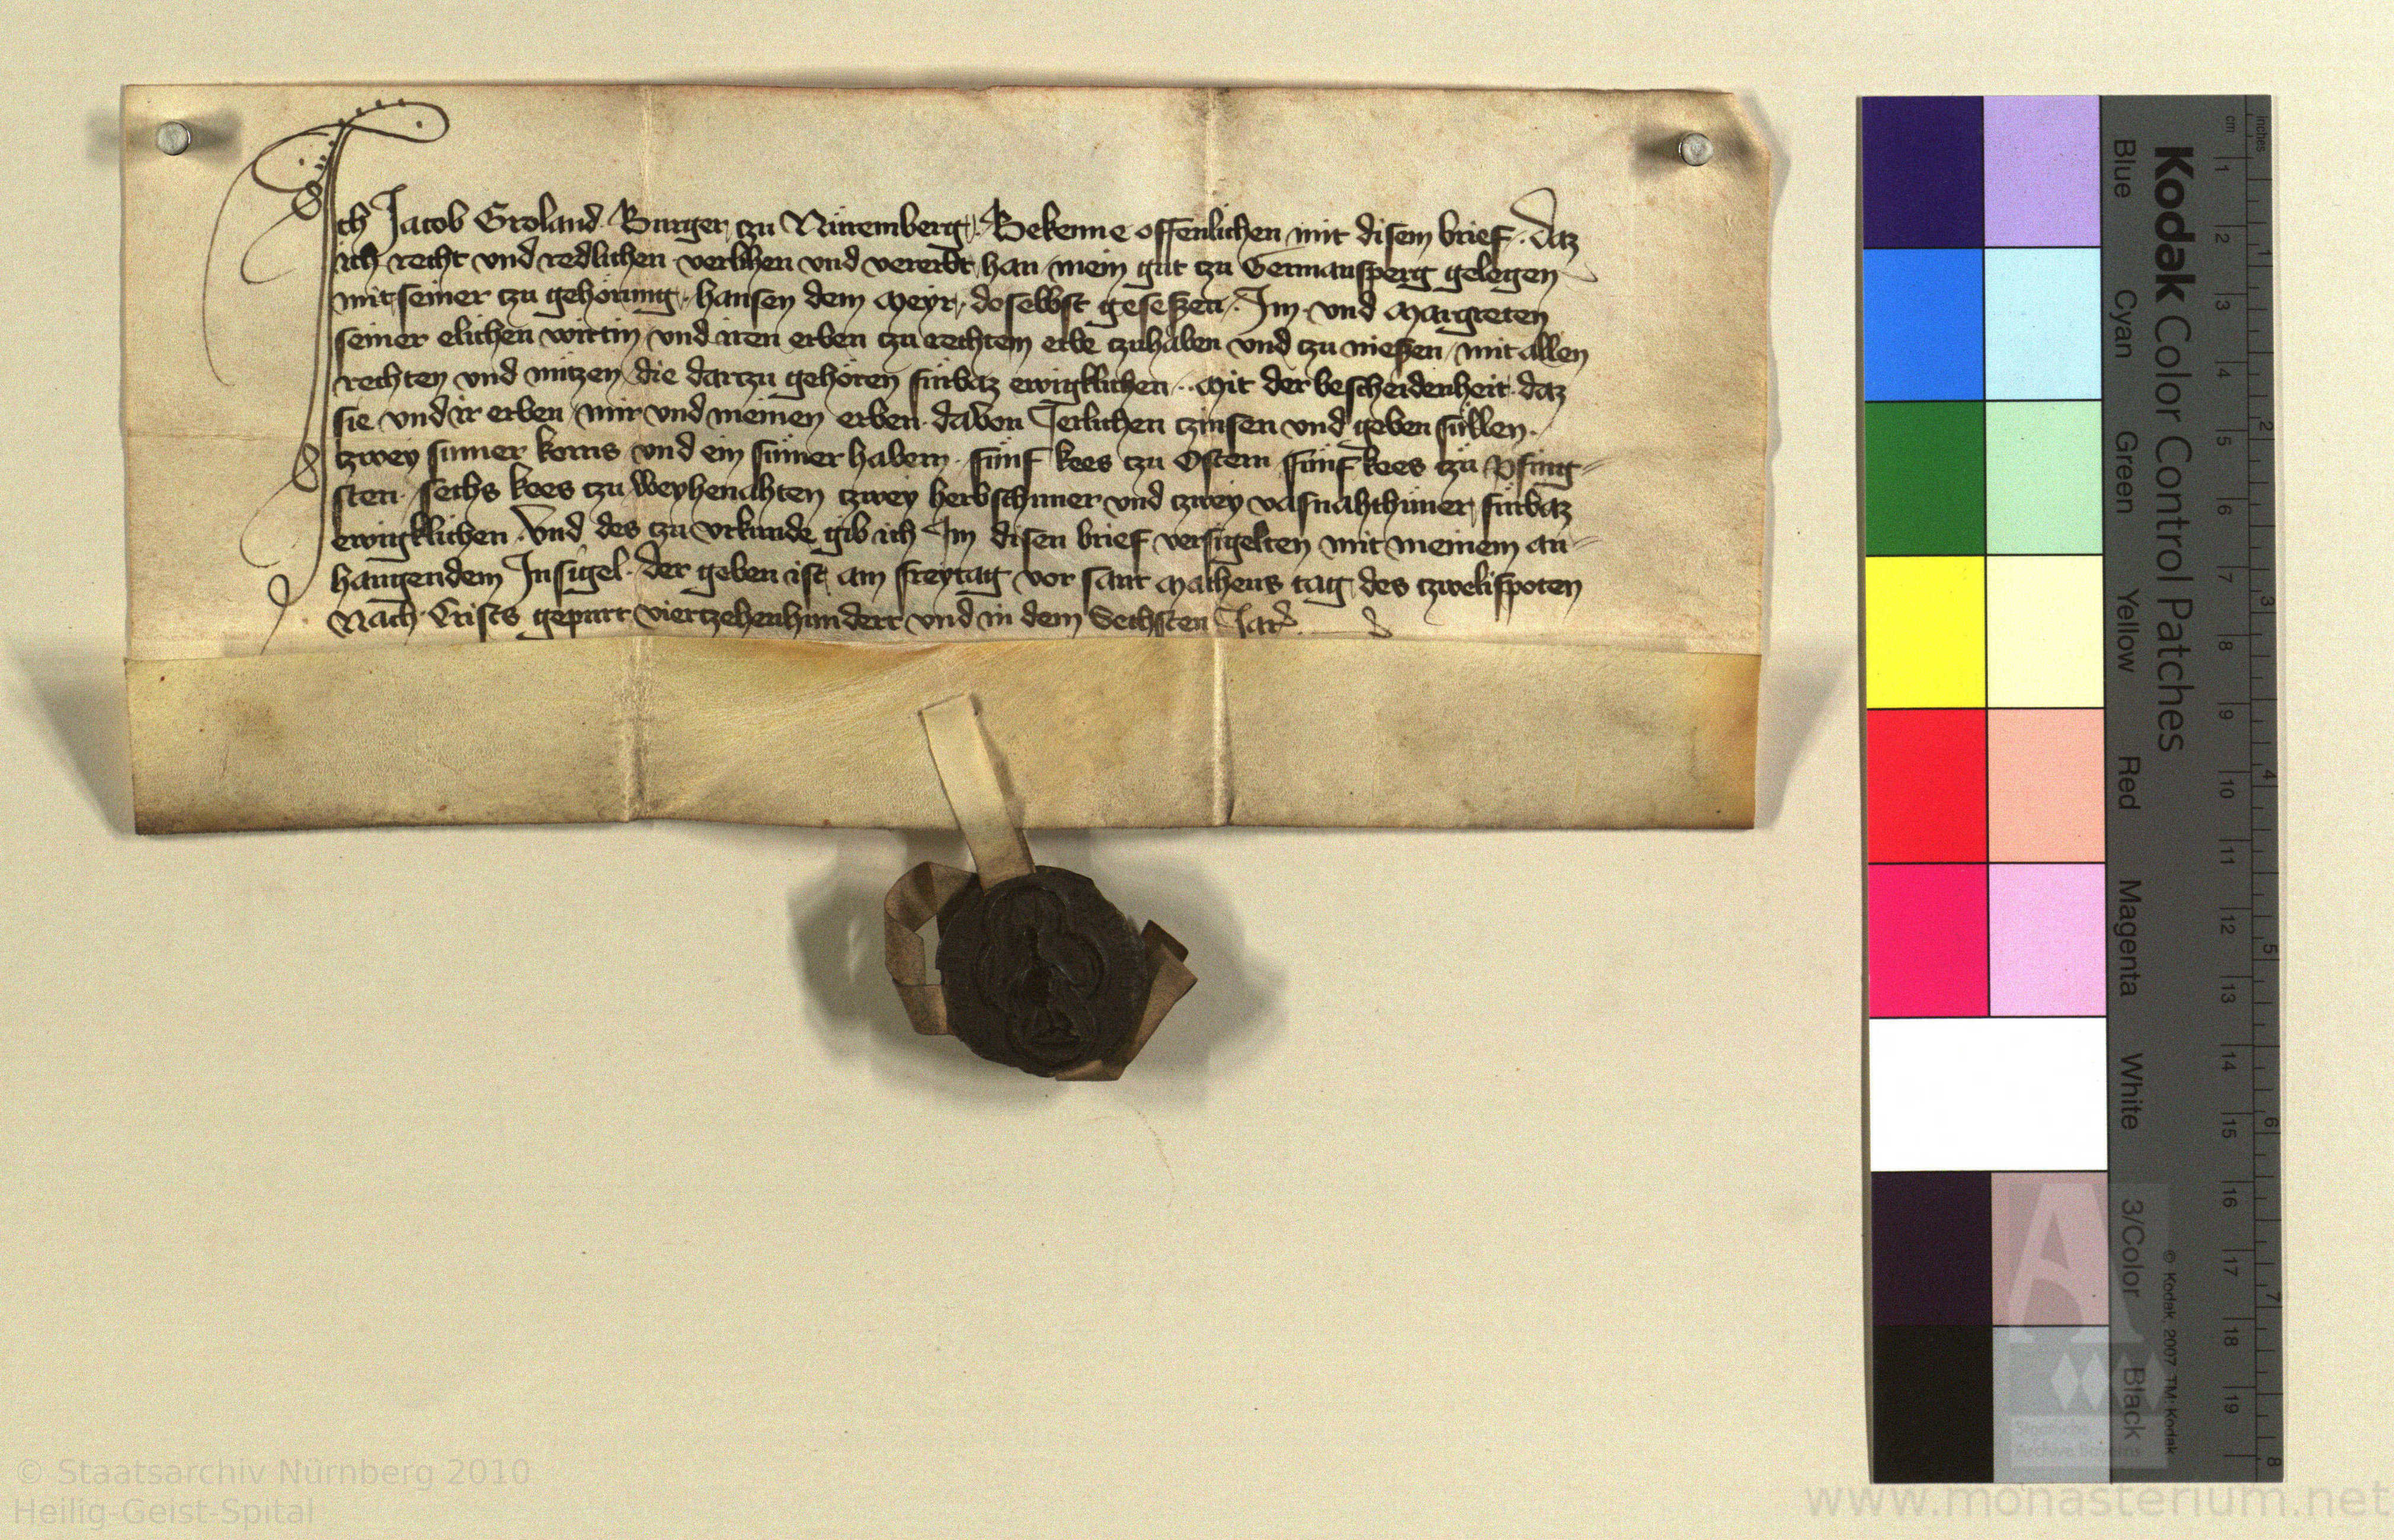 Ich Jacob Groland Burger zu Nüremberg Bekenne offenlichen mit disem brief daz
ich recht vnd redlichen verlihen vnd vererbt han mein gut zu Germansperg gelegen
mit seiner zu gehörung hansen dem Meyr doselbst gesessen Im vnd Margreten
seiner elichen wirtin vnd iren erben zu rechtem erbe zuhaben vnd zu niessen mit allen
rechten vnd nützen die dartzu gehören fürbaz ewigklichen Mit der bescheidenheit daz
sie vnd ir erben mir vnd meinen erben dauon Jerlichen zinsen vnd geben süllen
zwey sümer korns vnd ein sümer habern fünf kees zu Ostern fünf kees zu Pfing-
sten sechs kees zu Weyhenahten zwey herbsthüner vnd zwey vasnahthüner fürbaz
ewigklichen Vnd des zu vrkunde gib ich Im disen brief versigelten mit meinem an-
hangendem Insigel Der geben ist am freytag vor sant Matheus tag des tzwelifpoten
Nach Crists gepurt viertzehenhundert vnd in dem Sechsten Jar
Kodak Color Control Patches
Blue Cyan Green Yellow Red Magenta White 3/Color Black
cm 1 2 3 4 5 6 7 8 9 10 11 12 13 14 15 16 17 18 19
inches 1 2 3 4 5 6 7 8
© Kodak, 2007 TM: Kodak
Staatliche
Archive Bayerns
© Staatsarchiv Nürnberg 2010
Heilig-Geist-Spital
www.monasterium.net